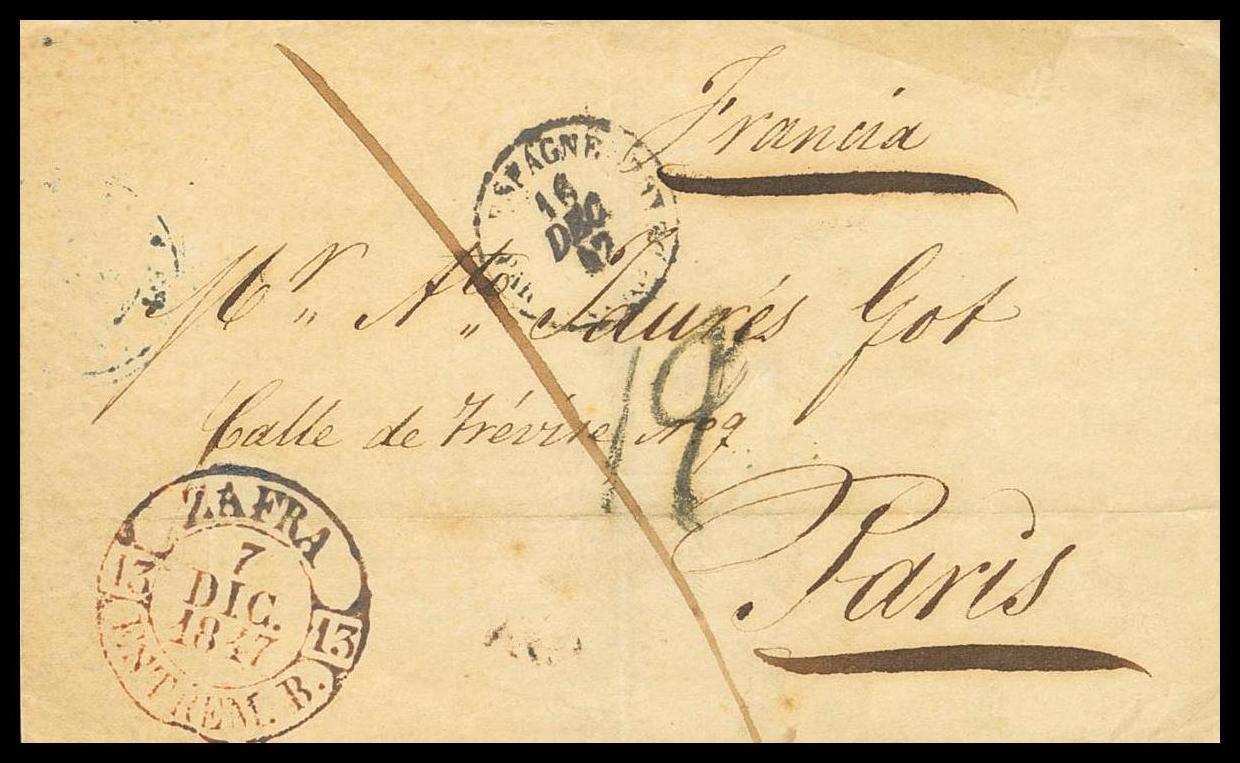 Francia
ESPAGNE
16
DEC
52
Mr. Ato. Saurés Got
Calle de Trévise No 9
19
Paris
ZAFRA
7
DIC.
1847
13 13
ENTREM. B.